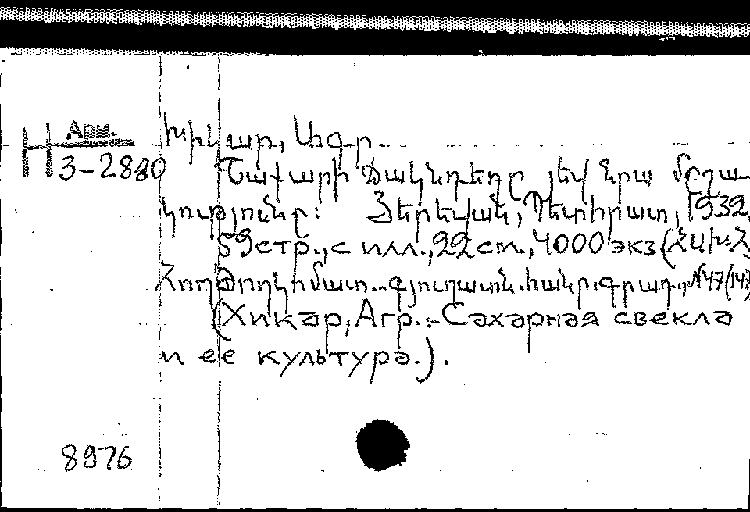 Арм.
Н 3-2880
Խիկար, Ագր.
Շաքարի ճակնդեղը յեվ նրա մշա-
կությունը: Յերեվան, Պետհրատ, 1932,
59 стр., с илл., 22 cm., 4000 экз (ՀՍԽՀ
Հողժողկոմատ.-գյուղատնt. հանր. գրադ., №47(14)
(Хикар, Агр.-Сахарная свекла
и ее культура.).
8976